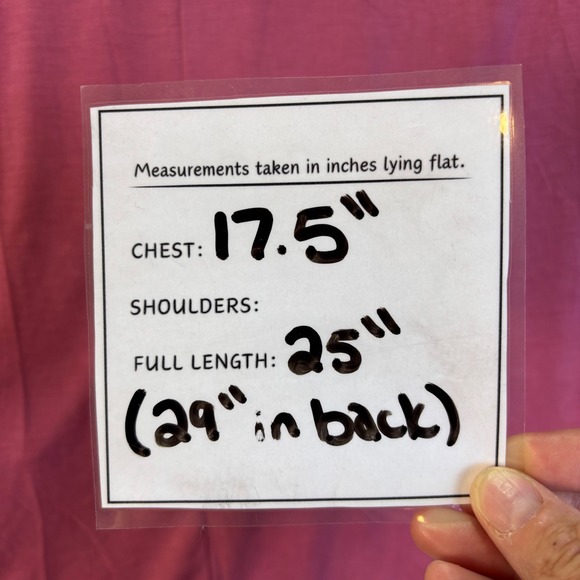 Measurements taken in inches lying flat.
CHEST: 17.5"
SHOULDERS:
FULL LENGTH: 25"
(29" in back)